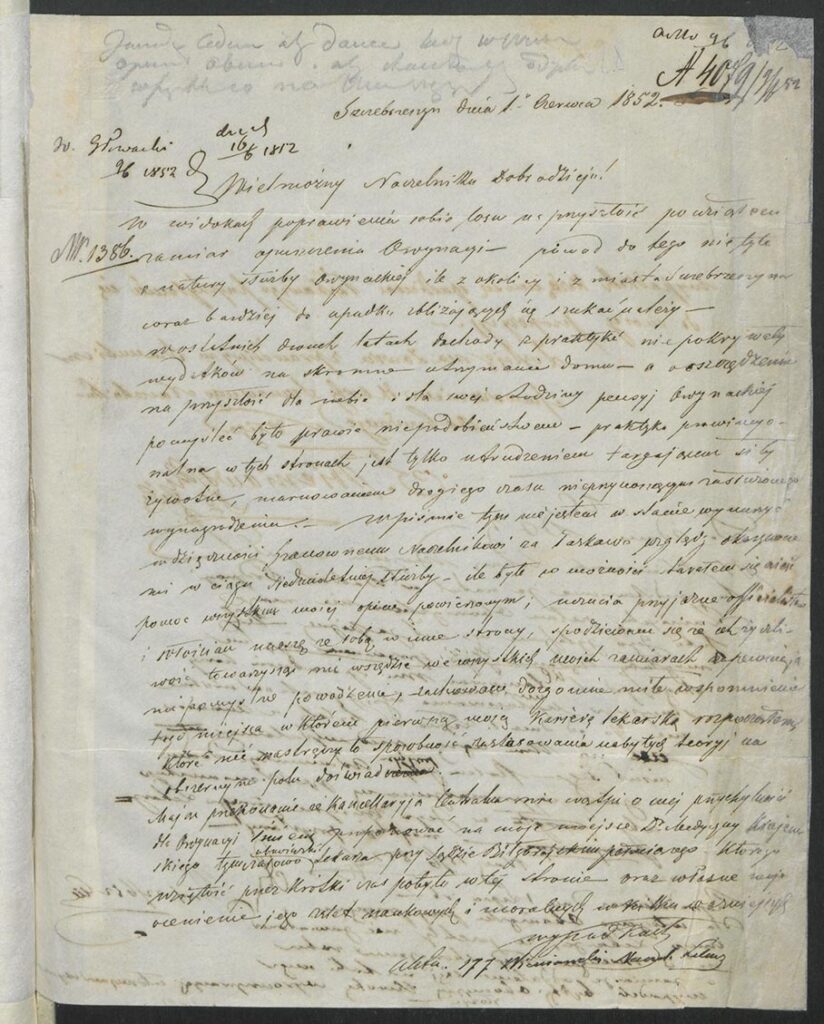 Szczebrzeszyn dnia 1° Czerwca 1852.
Głowacki
1852
16/6 1852
Wielmożny Naczelniku Dobrodzieju!
W widokach poprawienia sobie losu na przyszłość powziąłem
Nr. 1386.
zamiar opuszczenia Ordynacyi – powód do tego nie tyle
z natury służby Ordynackiej ile z okolicy i z miasta Szczebrzeszyna
coraz bardziej do upadku zbliżających się szukać należy –
W ostatnich dwóch latach dochody z praktyki nie pokrywały
wydatków na skromne utrzymanie domu – a o oszczędzeniu
na przyszłość dla siebie i dla mej Rodziny pensyi Ordynackiej
pomyśleć było prawie niepodobieństwem – praktyka prowincyo-
nalna w tych stronach jest tylko utrudzeniem targającem siły
żywotne, marnowaniem drogiego czasu nieprzynoszącym zasłużonego
wynagrodzenia. – W piśmie tym niejestem w stanie wynurzyć
wdzięczności Szanownemu Naczelnikowi za łaskawe względy okazywane
mi w ciągu siedmioletniej służby – ile było w możności starałem się nieść
pomoc wszystkim mojej opiece powierzonym, uczucia przyjazne officyalistów
i włościan naszę ze sobą w inne strony, spodziewam się że ich życzli-
wość towarzysząc mi wszędzie we wszystkich moich zamiarach zapewnia
powodzenie, zachowam dozgonnie miłe wspomnienie
miejsca w którem pierwszą moją Karierę lekarską rozpocząłem
które mi nastręczyło sposobność zastosowania nabytych teoryj na
obszernym polu doświadczenia.
Mając przekonanie że Kancellaryja Centralna nie wątpi o mej przychylności
dla Ordynacyi śmiem proponować na moje miejsce Dr Medycyny
skiego tymczasowo lekarza przy Sądzie Biłgorajskim którego
wziętość przez krótki czas pobytu w tej stronie oraz własne moje
ocenienie jego zalet naukowych i moralnych w kilku ważniejszych
wypadkach
177